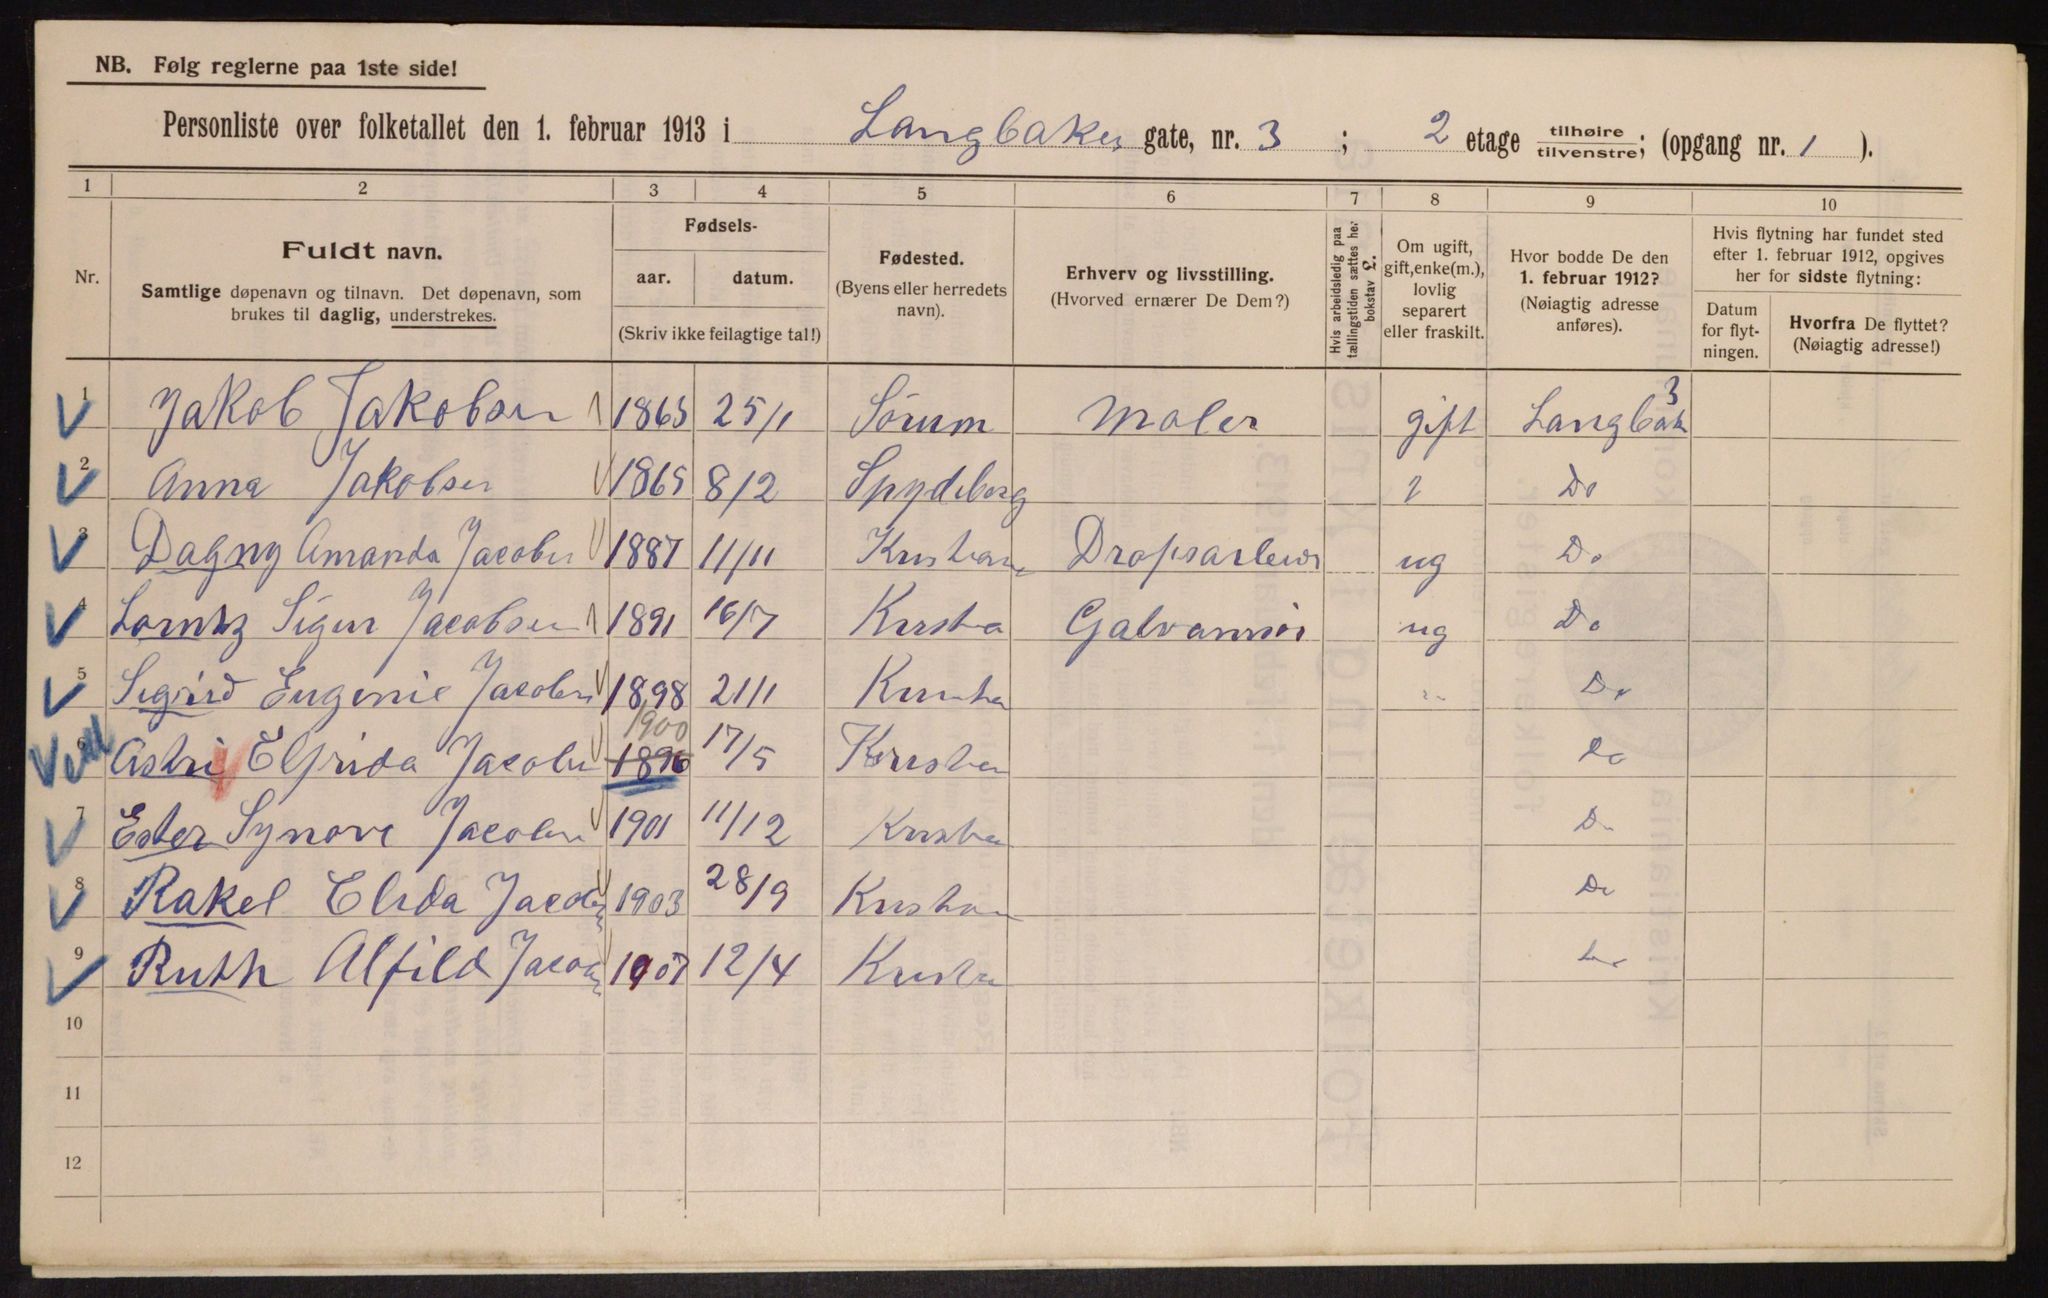 NB. Følg reglerne paa 1ste side!
Personliste over folketallet den 1. februar 1913 i Langbakes gate, nr. 3 ; 2 etage tilhøire/tilvenstre; (opgang nr. 1 ).
1 2 3 4 5 6 7 8 9 10
Nr.
Fuldt navn.
Samtlige døpenavn og tilnavn. Det døpenavn, som
brukes til daglig, understrekes.
Fødsels-
aar. datum.
(Skriv ikke feilagtige tal!)
Fødested.
(Byens eller herredets
navn).
Erhverv og livsstilling.
(Hvorved ernærer De Dem?)
Hvis arbeidsledig paa
tællingstiden sættes her
bokstav L.
Om ugift,
gift, enke(m.),
lovlig
separert
eller fraskilt.
Hvor bodde De den
1. februar 1912?
(Nøiagtig adresse
anføres).
Hvis flytning har fundet sted
efter 1. februar 1912, opgives
her for sidste flytning:
Datum
for flyt-
ningen.
Hvorfra De flyttet?
(Nøiagtig adresse!)
1 Jakob Jakobsen 1865 25/1 Sørum Maler gift Langbak 3
2 Anna Jakobsen 1865 8/2 Spydeberg Do
3 Dagny Amanda Jacobs 1887 11/11 Kristiania Dropsarbeid ug Do
4 Lorntz Sigur Jacobsen 1891 16/7 Krista Galvanisør ug Do
5 Sigrid Eugenie Jacobsen 1898 21/1 Krista " Do
6 Astri Elfrida Jacobsen 1896 1900 17/5 Kristian Do
7 Ester Synove Jacobsen 1901 11/12 Kristian Do
8 Rakel Elida Jacobsen 1903 28/9 Kristian Do
9 Ruth Alfild Jacobs 1907 12/4 Kristia Do
10
11
12